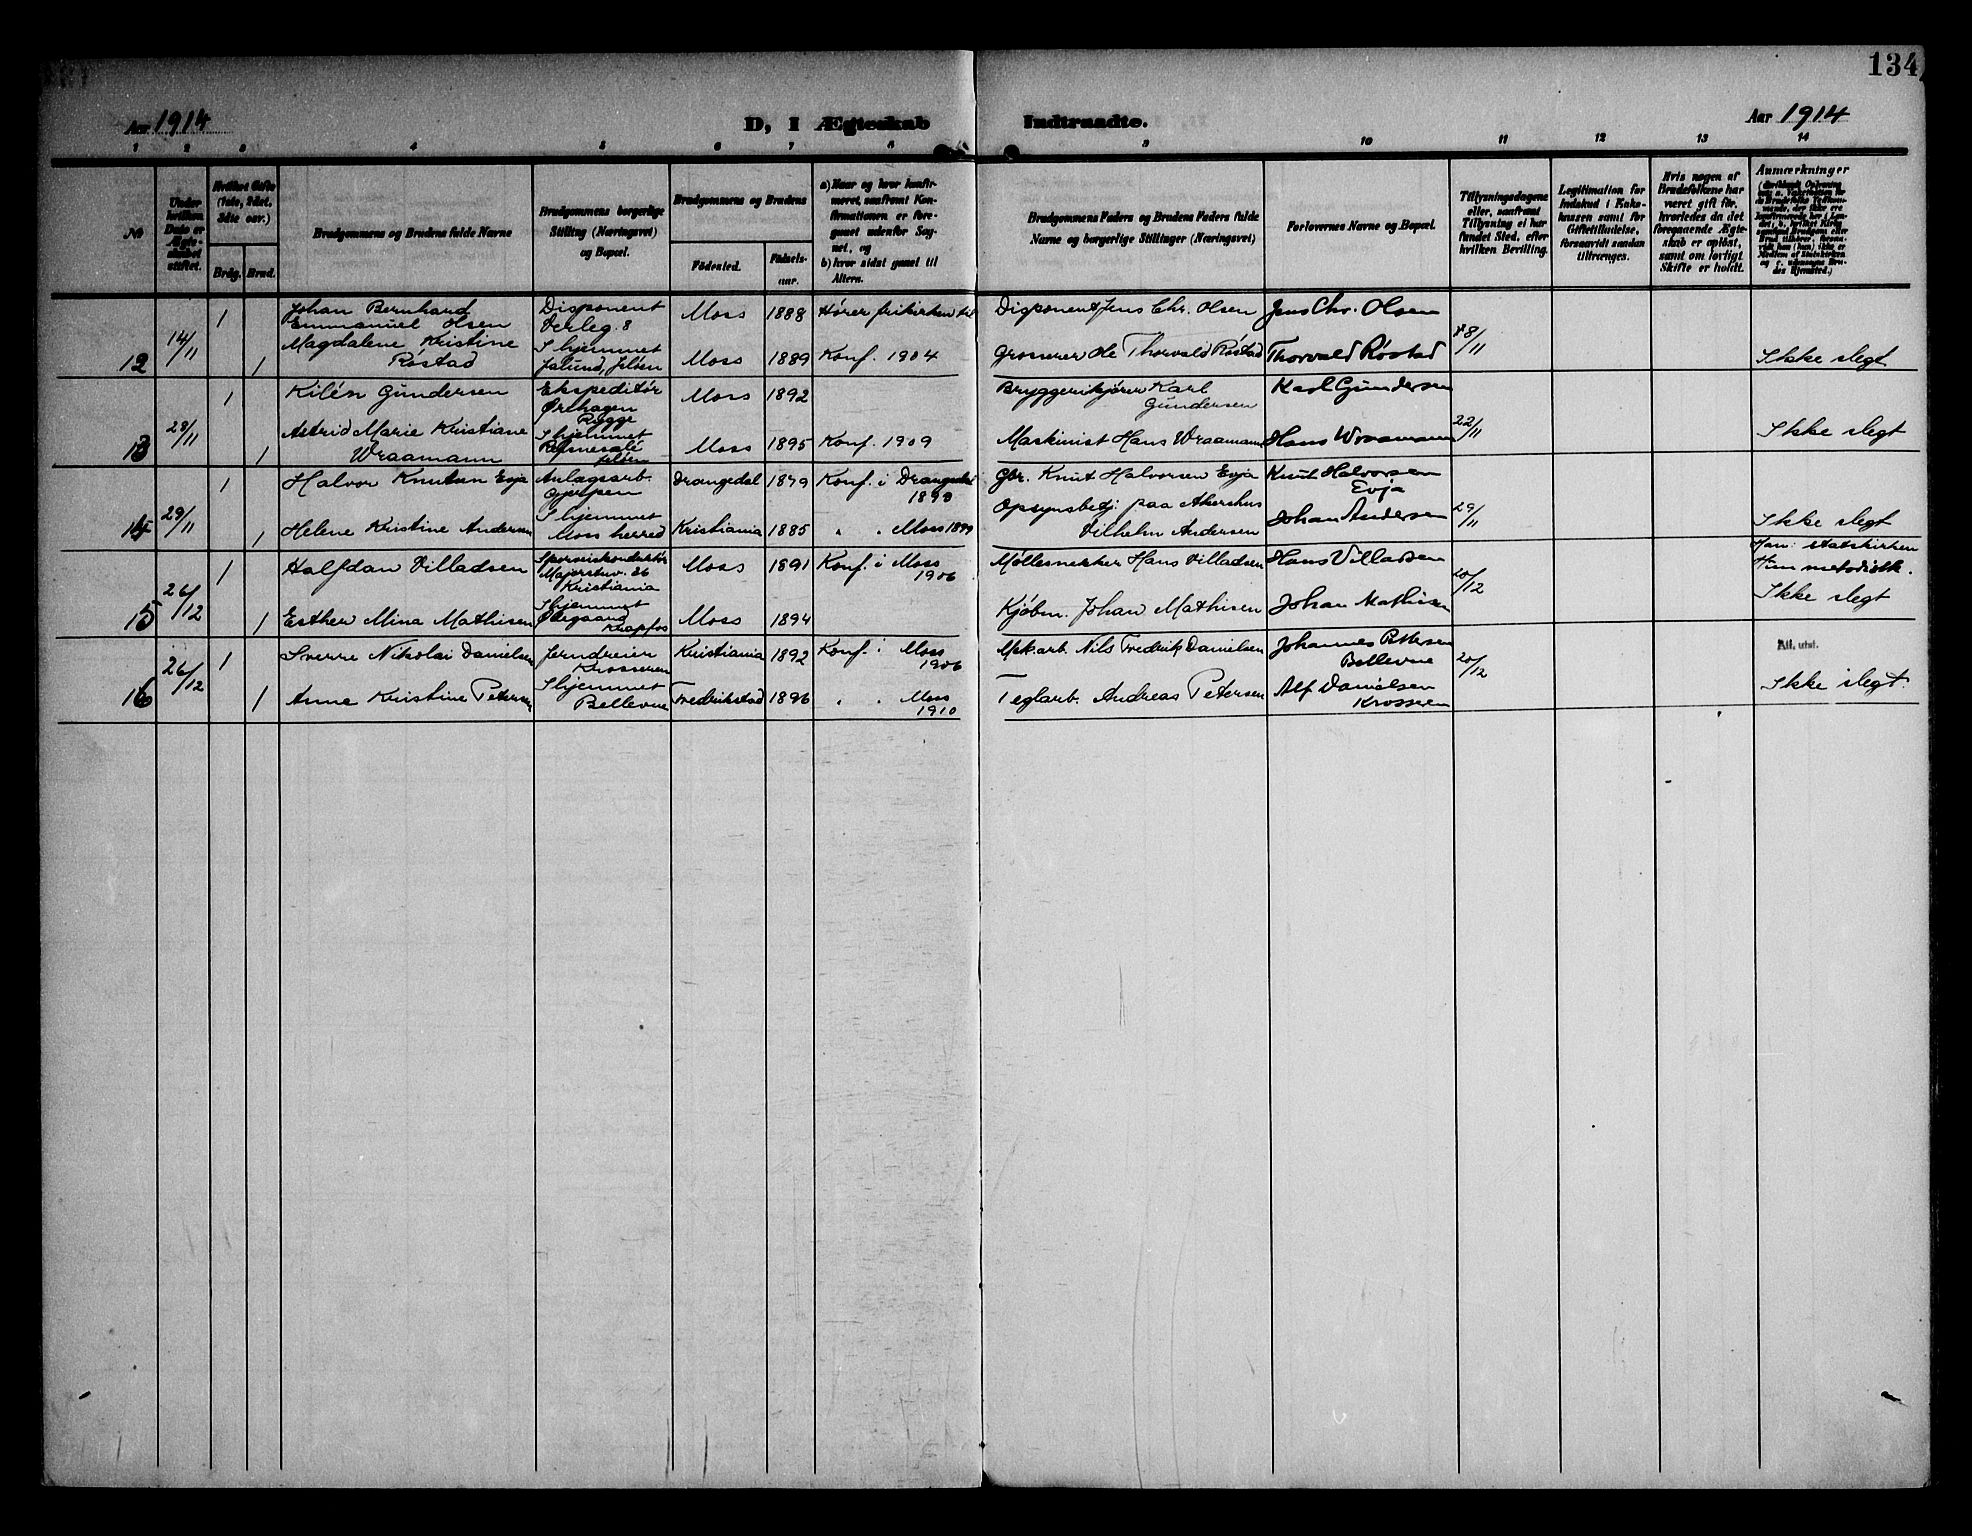 134
Aar 1914
D, I Ægteskab
Indtraadte.
Aar 1914
1 2 3 4 5 6 7 8 9 10 11 12 13 14
№
Under hvilken Dato er Ægteskabet stiftet.
Hvilket Gifte (1ste, 2det, 3die osv.)
Brdg. Brud.
Brudgommens og Brudens fulde Navne
Brudgommens borgerlige Stilling (Næringsvei) og Bopæl.
Brudgommens og Brudens
Födested.
Födselsaar.
a) Naar og hvor konfirmeret, saafremt Konfirmationen er foregaaet udenfor Sognet, og
b) hvor sidst gaaet til Alters.
Brudgommens Faders og Brudens Faders fulde Navne og borgerlige Stillinger (Næringsvei)
Forlovernes Navne og Bopæl.
Tillysningsdagene eller, saafremt Tillysning ei har fundet Sted, efter hvilken Bevilling.
Legitimation for Indskud i Enkekassen samt for Giftetilladelse, forsaavidt saadan tiltrænges.
Hvis nogen af Brudefolkene har været gift før, hvorledes da det foregaaende Ægteskab er opløst, samt om lovligt Skifte er holdt.
Anmærkninger
12
14/11
1
Johan Bernhard
Emmanuel Olsen
Disponent
Verleg. 8
Moss 1888 Hører frikirken til
Disponent Jens Chr. Olsen
Jens Chr. Olsen
8/11
1
Magdalene Kristine
Röstad
I hjemmet
Jalund, Jelöen
Moss 1889 Konf. 1904
Grosserer Ole Thorvald Röstad
Thorvald Röstad
Ikke slegt
13
28/11
1
Kilén Gundersen
Ekspeditör
Ørehagen
Rygge
Moss 1892
Bryggerikjører Karl
Gundersen
Karl Gundersen
22/11
1
Astrid Marie Kristiane
Wraamann
I hjemmet
Refsnesalé
Jelöen
Moss 1895 Konf. 1909
Maskinist Hans Wraamann
Hans Wraamann
Ikke slegt
14
29/11
1
Halvor Knutsen Evja
Anlagsarb.
Gjerpen
Drangedal 1879 Konf. i Drangedal
Gbr. Knut Halvorsen Evja
Knut Halvorsen
Evja
29/11
1
Helene Kristine Andersen
I hjemmet
Moss herred
Kristiania 1885 " " Moss 1899
Opsynsbetj. paa Akershus
Vilhelm Andersen
Johan Andersen
Ikke slegt
15
26/12
1
Halfdan Villadsen
Sporveiskonduktör
Majorstuv. 26
Kristiania
Moss 1891 Konf. i Moss
1906
Möllesnekker Hans Villadsen
Hans Villadsen
20/12
Han: statskirken
Hun metodistk.
1
Esther Mina Mathisen
I hjemmet
Ødegaard
Knapfos
Moss 1894
Kjöbm. Johan Mathisen
Johan Mathisen
Ikke slegt
16
26/12
1
Sverre Nikolai Danielsen
Jerndreier
Krosseren
Kristiania 1892 Konf. i Moss
1906
Mek arb. Nils Fredrik Danielsen
Johannes Pettersen
Bellevue
20/12
Att. utst.
1
Anne Kristine Petersen
I hjemmet
Bellevue
Fredrikstad 1896 " " Moss
1910
Teglarb. Andreas Petersen
Alf Danielsen
Krosseren
Ikke slegt.